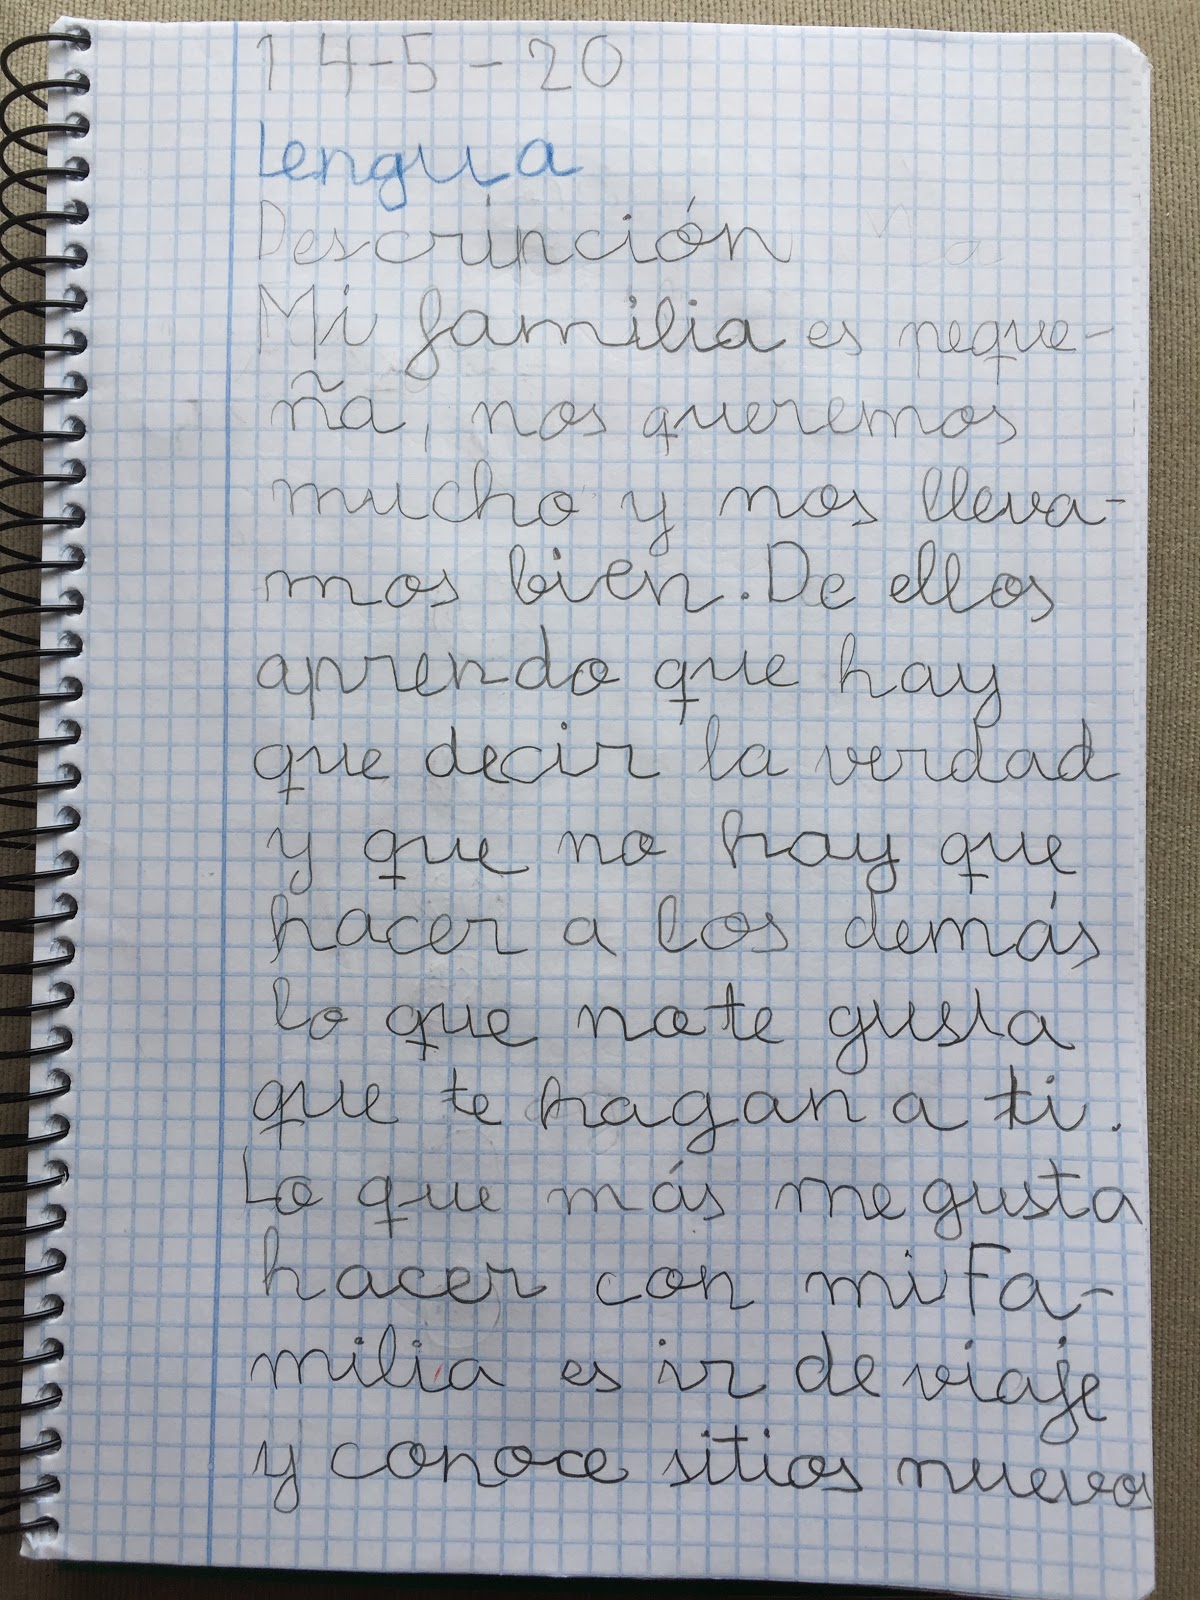 14-5-20
Lengua
Descripción
Mi familia es peque-
ña, nos queremos
mucho y nos lleva-
mos bien. De ellos
aprendo que hay
que decir la verdad
y que no hay que
hacer a los demás
lo que no te gusta
que te hagan a ti.
Lo que más me gusta
hacer con mi Fa-
milia es ir de viaje
y conoce sitios nuevos